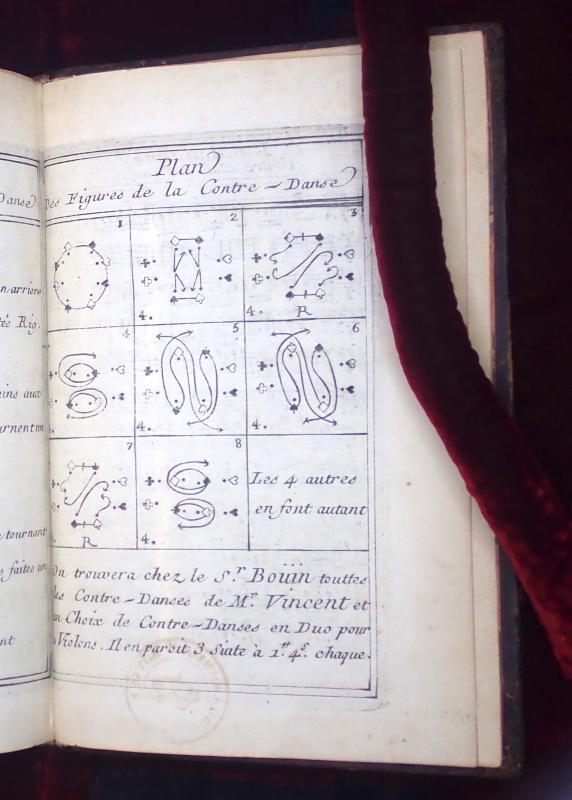 Plan
Des Figures de la Contre-Danse
1 2 3
4. 4.
R
4 5 6
4. 4.
7 8
R 4.
Les 4 autres
en font autant
On trouvera chez le S.r Boüin touttes
les Contre-Danses de M.r Vincent et
un Choix de Contre-Danses en Duo pour
Violons. Il en paroit 3 Suite à 1.tt 4.s chaque.
Danse
n arriere
tés Rig.
ins aux
urnent un
e tournant
s faites un
nt